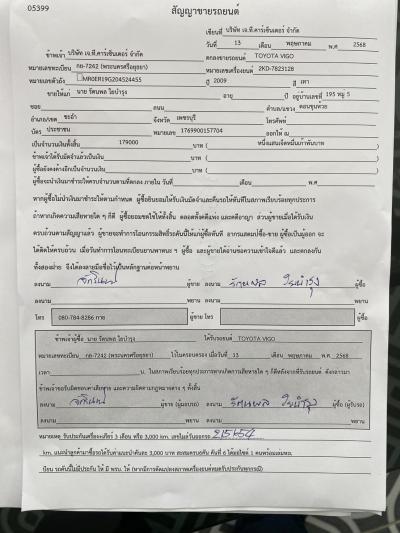 05399
สัญญาขายรถยนต์
เขียนที่ บริษัท เจ.ที.คาร์เซ็นเตอร์ จำกัด
วันที่ 13 เดือน พฤษภาคม พ.ศ 2568
ข้าพเจ้า บริษัท เจ.ที.คาร์เซ็นเตอร์ จำกัด ตกลงขายรถยนต์ TOYOTA VIGO
หมายเลขทะเบียน กย-7242 (พระนครศรีอยุธยา) หมายเลขเครื่องยนต์ 2KD-7823128
หมายเลขตัวถัง MR0ER19G204524455 ปี 2009 สี เทา
ขายให้แก่ นาย รัตนพล ใยบำรุง อายุ ปี อยู่บ้านเลขที่ 195 หมู่ 5
ซอย ถนน ตำบล/แขวง ดอนขุนห้วย
อำเภอ/เขต ชะอำ จังหวัด เพชรบุรี โทรศัพท์
บัตร ประชาชน หมายเลข 1769900157704 ออกให้ ณ
เป็นจำนวนเงินทั้งสิ้น 179000 บาท ( หนึ่งแสนเจ็ดหมื่นเก้าพันบาท )
ข้าพเจ้าได้รับมัดจำแล้วเป็นเงิน บาท ( )
ผู้ซื้อยังคงค้างอีกเป็นจำนวนเงิน บาท ( )
ผู้ซื้อจะนำเงินมาชำระให้ครบจำนวนตามที่ตกลง ภายใน วันที่ เดือน พ.ศ
หากผู้ซื้อไม่นำเงินมาชำระตามกำหนด ผู้ซื้อยินยอมให้ริบเงินมัดจำและคืนรถให้ทันทีในสภาพเรียบร้อยทุกประการ
ถ้าหากเกิดความเสียหายใด ๆ ก็ดี ผู้ซื้อยอมชดใช้ให้ทั้งสิ้น ตลอดทั้งคดีแพ่ง และคดีอาญา ส่วนผู้ขายเมื่อได้รับเงิน
ครบถ้วนตามสัญญาแล้ว ผู้ขายจะทำการโอนกรรมสิทธิ์รถคันนี้ให้แก่ผู้ซื้อทันที อากรแสตมป์ซื้อ-ขาย ผู้ซื้อเป็นผู้ออก จะ
ได้คิดให้ครบถ้วน เมื่อวันทำการโอนทะเบียนยานพาหนะ ฯ ผู้ซื้อ และผู้ขายได้อ่านข้อความเข้าใจดีแล้ว และตกลงกัน
ทั้งสองฝ่าย จึงได้ลงลายมือชื่อไว้เป็นหลักฐานต่อหน้าพยาน
ลงนาม ผู้ขาย ลงนาม รัตนพล ใยบำรุง ผู้ซื้อ
ลงนาม พยาน ลงนาม พยาน
โทร 080-784-8286 กาย ผู้ขาย โทร ผู้ซื้อ
ข้าพเจ้าผู้ซื้อ นาย รัตนพล ใยบำรุง ได้รับรถยนต์ TOYOTA VIGO
หมายเลขทะเบียน กย-7242 (พระนครศรีอยุธยา) ไว้ในครอบครอง เมื่อวันที่ 13 เดือน พฤษภาคม พ.ศ. 2568
เวลา น. ในสภาพเรียบร้อยทุกประการหากเกิดความเสียหายใด ๆ ก็ดีหลังจากที่รับรถยนต์ ดังกล่าวมา
ข้าพเจ้าขอรับผิดชอบค่าเสียหาย และความผิดตามกฎหมายต่าง ๆ ทั้งสิ้น
ลงนาม ผู้ขาย (ผู้มอบรถ) ลงนาม รัตนพล ใยบำรุง ผู้ซื้อ (ผู้รับรถ)
ลงนาม พยาน ลงนาม พยาน
หมายเหตุ รับประกันเครื่องเกียร์ 3 เดือน หรือ 3,000 km. เลขไมล์วันออกรถ 215154
km. แนะนำลูกค้ามาซื้อรถได้รับค่าแนะนำคันละ 3,000 บาท